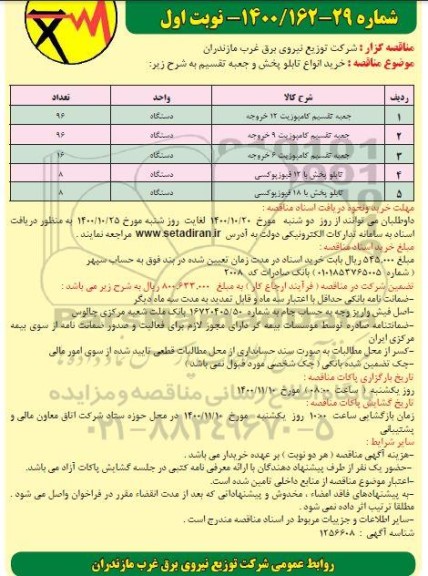 شماره ۲۹-۱۴۰۰/۱۶۲- نوبت اول
مناقصه گزار : شرکت توزیع نیروی برق غرب مازندران
موضوع مناقصه : خرید انواع تابلو پخش و جعبه تقسیم به شرح زیر:
ردیف شرح کالا واحد تعداد
۱ جعبه تقسیم کامپوزیت ۱۲ خروجه دستگاه ۹۶
۲ جعبه تقسیم کامپوزیت ۹ خروجه دستگاه ۹۶
۳ جعبه تقسیم کامپوزیت ۶ خروجه دستگاه ۱۶
۴ تابلو پخش با ۱۲ فیوزپوکسی دستگاه ۸
۵ تابلو پخش با ۱۸ فیوزپوکسی دستگاه ۸
مهلت خرید ونحوه دریافت اسناد مناقصه :
داوطلبان می توانند از روز دو شنبه مورخ ۱۴۰۰/۱۰/۲۰ لغایت روز شنبه مورخ ۱۴۰۰/۱۰/۲۵ به منظور دریافت
اسناد به سامانه تدارکات الکترونیکی دولت به آدرس www.setadiran.ir مراجعه نمایند .
مبلغ خرید اسناد مناقصه :
۵۴۵,۰۰۰ ریال بابت خرید اسناد در مدت زمان تعیین شده در بند فوق به حساب سپهر
( شماره ۰۱۰۱۸۵۳۷۶۵۰۰۵ ) بانک صادرات کد ۲۰۰۸
تضمین شرکت در مناقصه ( فرآیند ارجاع کار ) به مبلغ ۸۰۰,۶۳۳,۰۰۰ ریال به شرح زیر می باشد :
-ضمانت نامه بانکی حداقل با اعتبار سه ماه و قابل تمدید به مدت سه ماه دیگر
-اصل فیش واریز وجه به حساب جام به شماره ۱۶۷۲۰۴۰۵/۵۰ بانک ملت شعبه مرکزی چالوس
-ضمانتنامه صادره توسط موسسات بیمه گر دارای مجوز لازم برای فعالیت و صدور ضمانت نامه از سوی بیمه
مرکزی ایران
-کسر از محل مطالبات به صورت سند حسابداری از محل مطالبات قطعی تایید شده از سوی امور مالی
-چک تضمین شده بانکی ( چک شخصی مورد قبول نمی باشد )
تاریخ بارگزاری پاکات مناقصه :
روز یکشنبه ( ساعت ۰۸:۰۰ ) مورخ ۱۴۰۰/۱۱/۱۰
تاریخ گشایش پاکات مناقصه :
زمان بازگشایی ساعت ۱۰:۰۰ روز یکشنبه مورخ ۱۴۰۰/۱۱/۱۰ در محل حوزه ستاد شرکت اتاق معاون مالی و
پشتیبانی
سایر شرایط :
-هزینه آگهی مناقصه ( هر دو نوبت ) بر عهده خریدار می باشد .
-حضور یک نفر از طرف پیشنهاد دهندگان با ارائه معرفی نامه کتبی در جلسه گشایش پاکات آزاد می باشد.
-اعتبار موضوع مناقصه از منابع داخلی تامین شده است.
-به پیشنهادهای فاقد امضاء ، مخدوش و پیشنهاداتی که بعد از مدت انقضاء مقرر در فراخوان واصل می شود .
مطلقا ترتیب اثر داده نمی شود .
-سایر اطلاعات و جزییات مربوط در اسناد مناقصه مندرج است .
شناسه آگهی : ۱۲۵۶۶۰۸
روابط عمومی شرکت توزیع نیروی برق غرب مازندران
۰۲۱-۸۸۳۴۹۶۷۰-۵